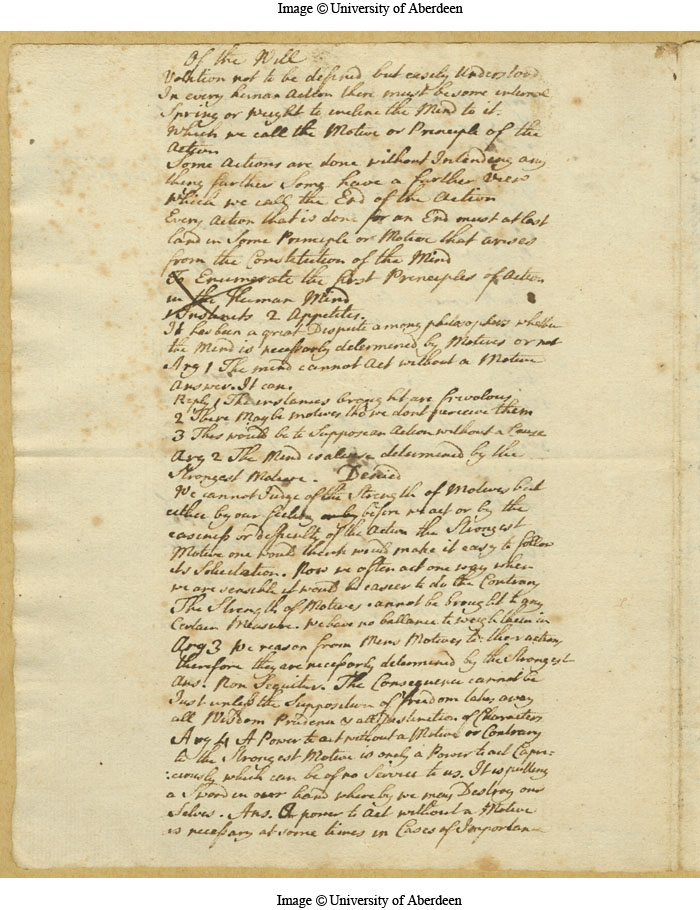 Image © University of Aberdeen
Of the Will
Volition not to be defined but easily Understood
In every human Action there must be some internal
Spring or weight to incline the Mind to it.
Which we call the Motive or Principle of the
Action
Some Actions are done without Intending any
thing further Some have a further View
Which we call the End of the Action
Every Action that is done for an End must at last
land in Some Principle or Motive that arises
from the Constitution of the Mind
To Enumerate the first Principles of Action
in the Human Mind
1 Instincts 2 Appetites.
It has been a great Dispute among philosophers whether
the Mind is necessarly determined by Motives or not
Arg 1 The mind cannot Act without a Motive
Answer. It can.
Reply 1 The instances brought are frivolous
2 There May be motives tho we dont perceive them
3 This would be to Suppose an Action without a Cause
Arg 2 The Mind is always determined by the
Strongest Motive. Denied
We cannot Judge of the Strength of Motives but
either by our feeling before we act or by the
easiness or difficulty of the Action the Strongest
Motive one would think would make it easy to follow
its Solicitation. Now we often act one way when
we are sensible it would be easier to do the Contrary
The Strength of Motives cannot be brought to any
Certain Measure. We have no ballance to weigh them in
Arg 3 We reason from Mens Motives to their actions
therefore they are necessarly determined by the Strongest
Ans. Non Sequitur. The Consequence cannot be
Just unless the Supposition of freedom takes away
all Wisdom Prudence & all Distinction of Characters
Arg 4 A Power to act without a Motive or Contrary
to the Strongest Motive is only a Power to act Capri=
:ciously which can be of no Service to us. It is putting
a Sword in our hand whereby we may Destroy our
Selves. Ans. A power to Act without a Motive
is necessary at some times in Cases of Importan
Image © University of Aberdeen